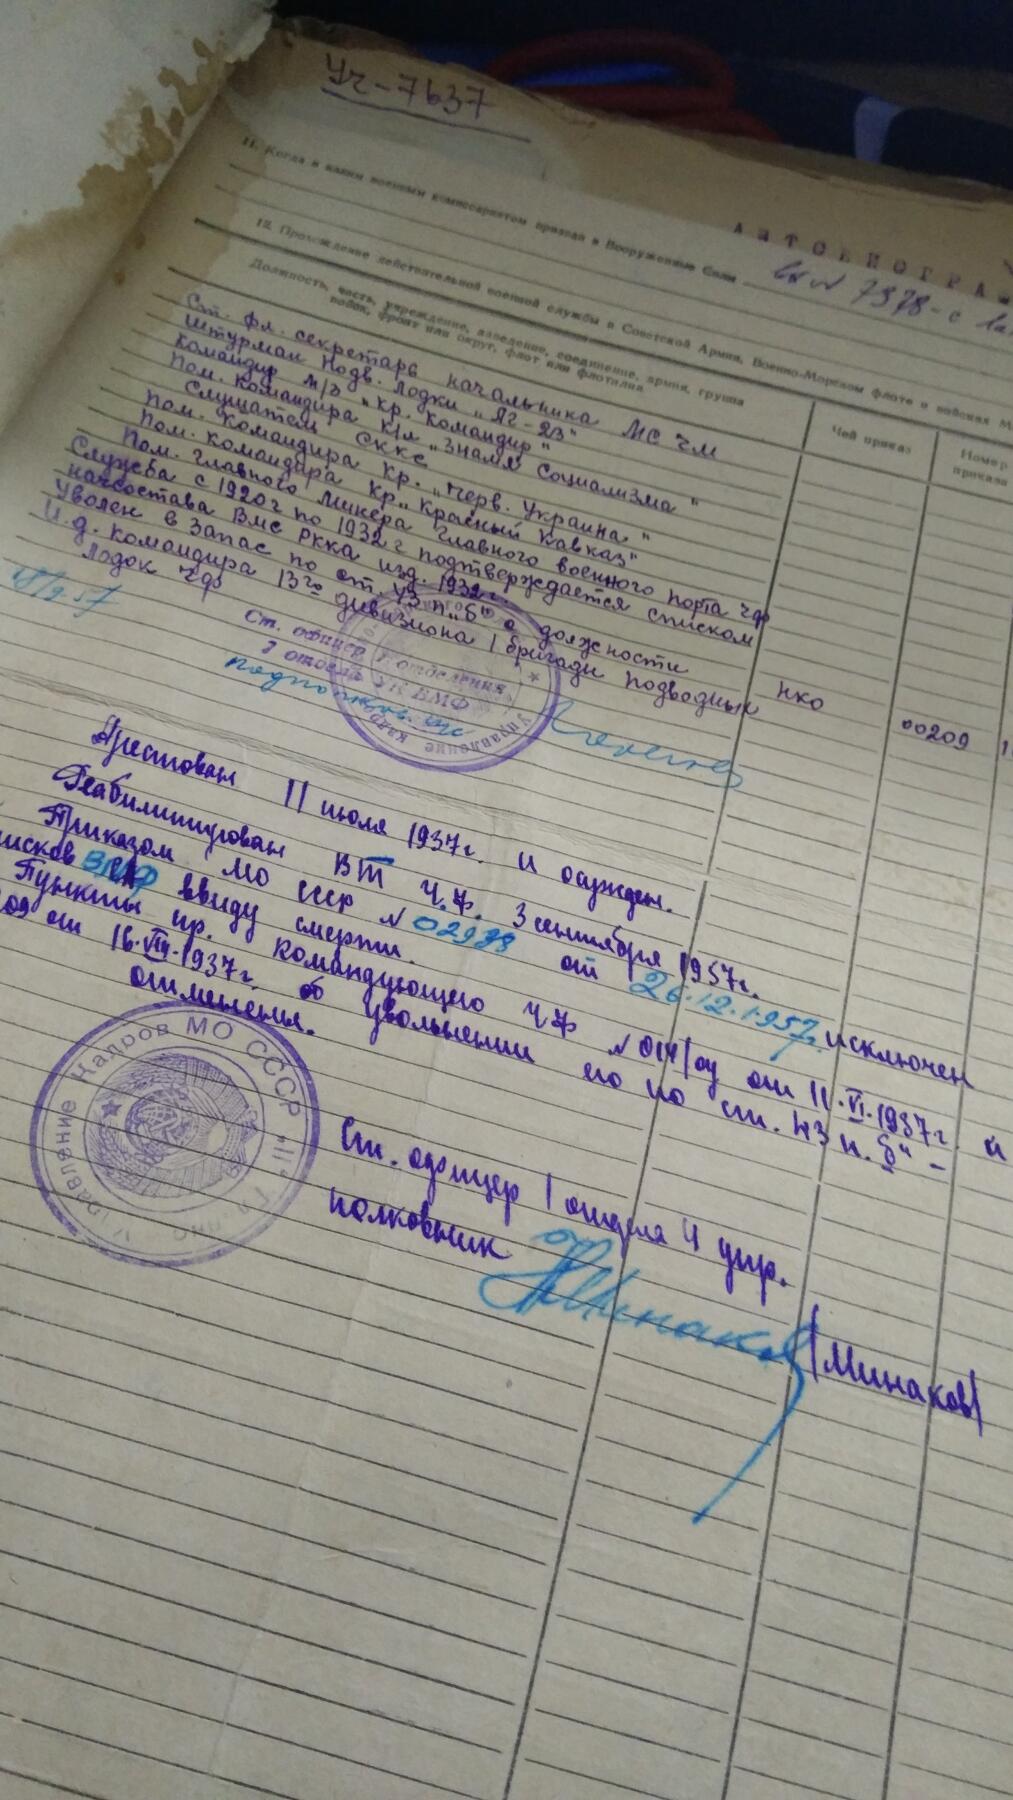 Уч-7637
АВТОБИОГРА
11. Когда и каким военным комиссариатом призван в Вооруженные Силы
7978-с
12. Прохождение действительной военной службы в Советской Армии, Военно-Морском флоте и войсках М
Должность, часть, учреждение, заведение, соединение, армия, группа
войск, фронт или округ, флот или флотилия
Чей приказ
Номер
приказа
Ст. фл. секретарь начальника МС ЧМ
Штурман подв. лодки „АГ-23"
Командир м/з „Кр. Командир"
Пом. командира к/л „Знамя Социализма"
Слушатель СККС
Пом. командира кр. „Черв. Украина"
Пом. командира кр. „Красный Кавказ"
Пом. главного минера главного военного порта ЧФ
Служба с 1920г по 1932г подтверждается списком
начсостава ВМС РККА изд. 1932г.
Уволен в запас по ст. 43 п „б" с должности
И.д. командира 13го дивизиона 1 бригады подводных
лодок ЧФ
НКО
00209
Ст. офицер отделения
отдела УК ВМФ
Управление
Арестован 11 июля 1937г. и осужден.
Реабилитирован ВТ Ч.Ф. 3 сентября 1957г.
Приказом МО СССР № от 26.12.1957г. исключен
исков ВМФ ввиду смерти.
Пункты пр. командующего ЧФ № от 11.VI.1937г. и
209 от 16.VIII.1937г. об увольнении его по ст. 43 п. „б" –
отменены.
Управление Кадров МО СССР
Ст. офицер 1 отдела 4 упр.
полковник
Минаков /Минаков/